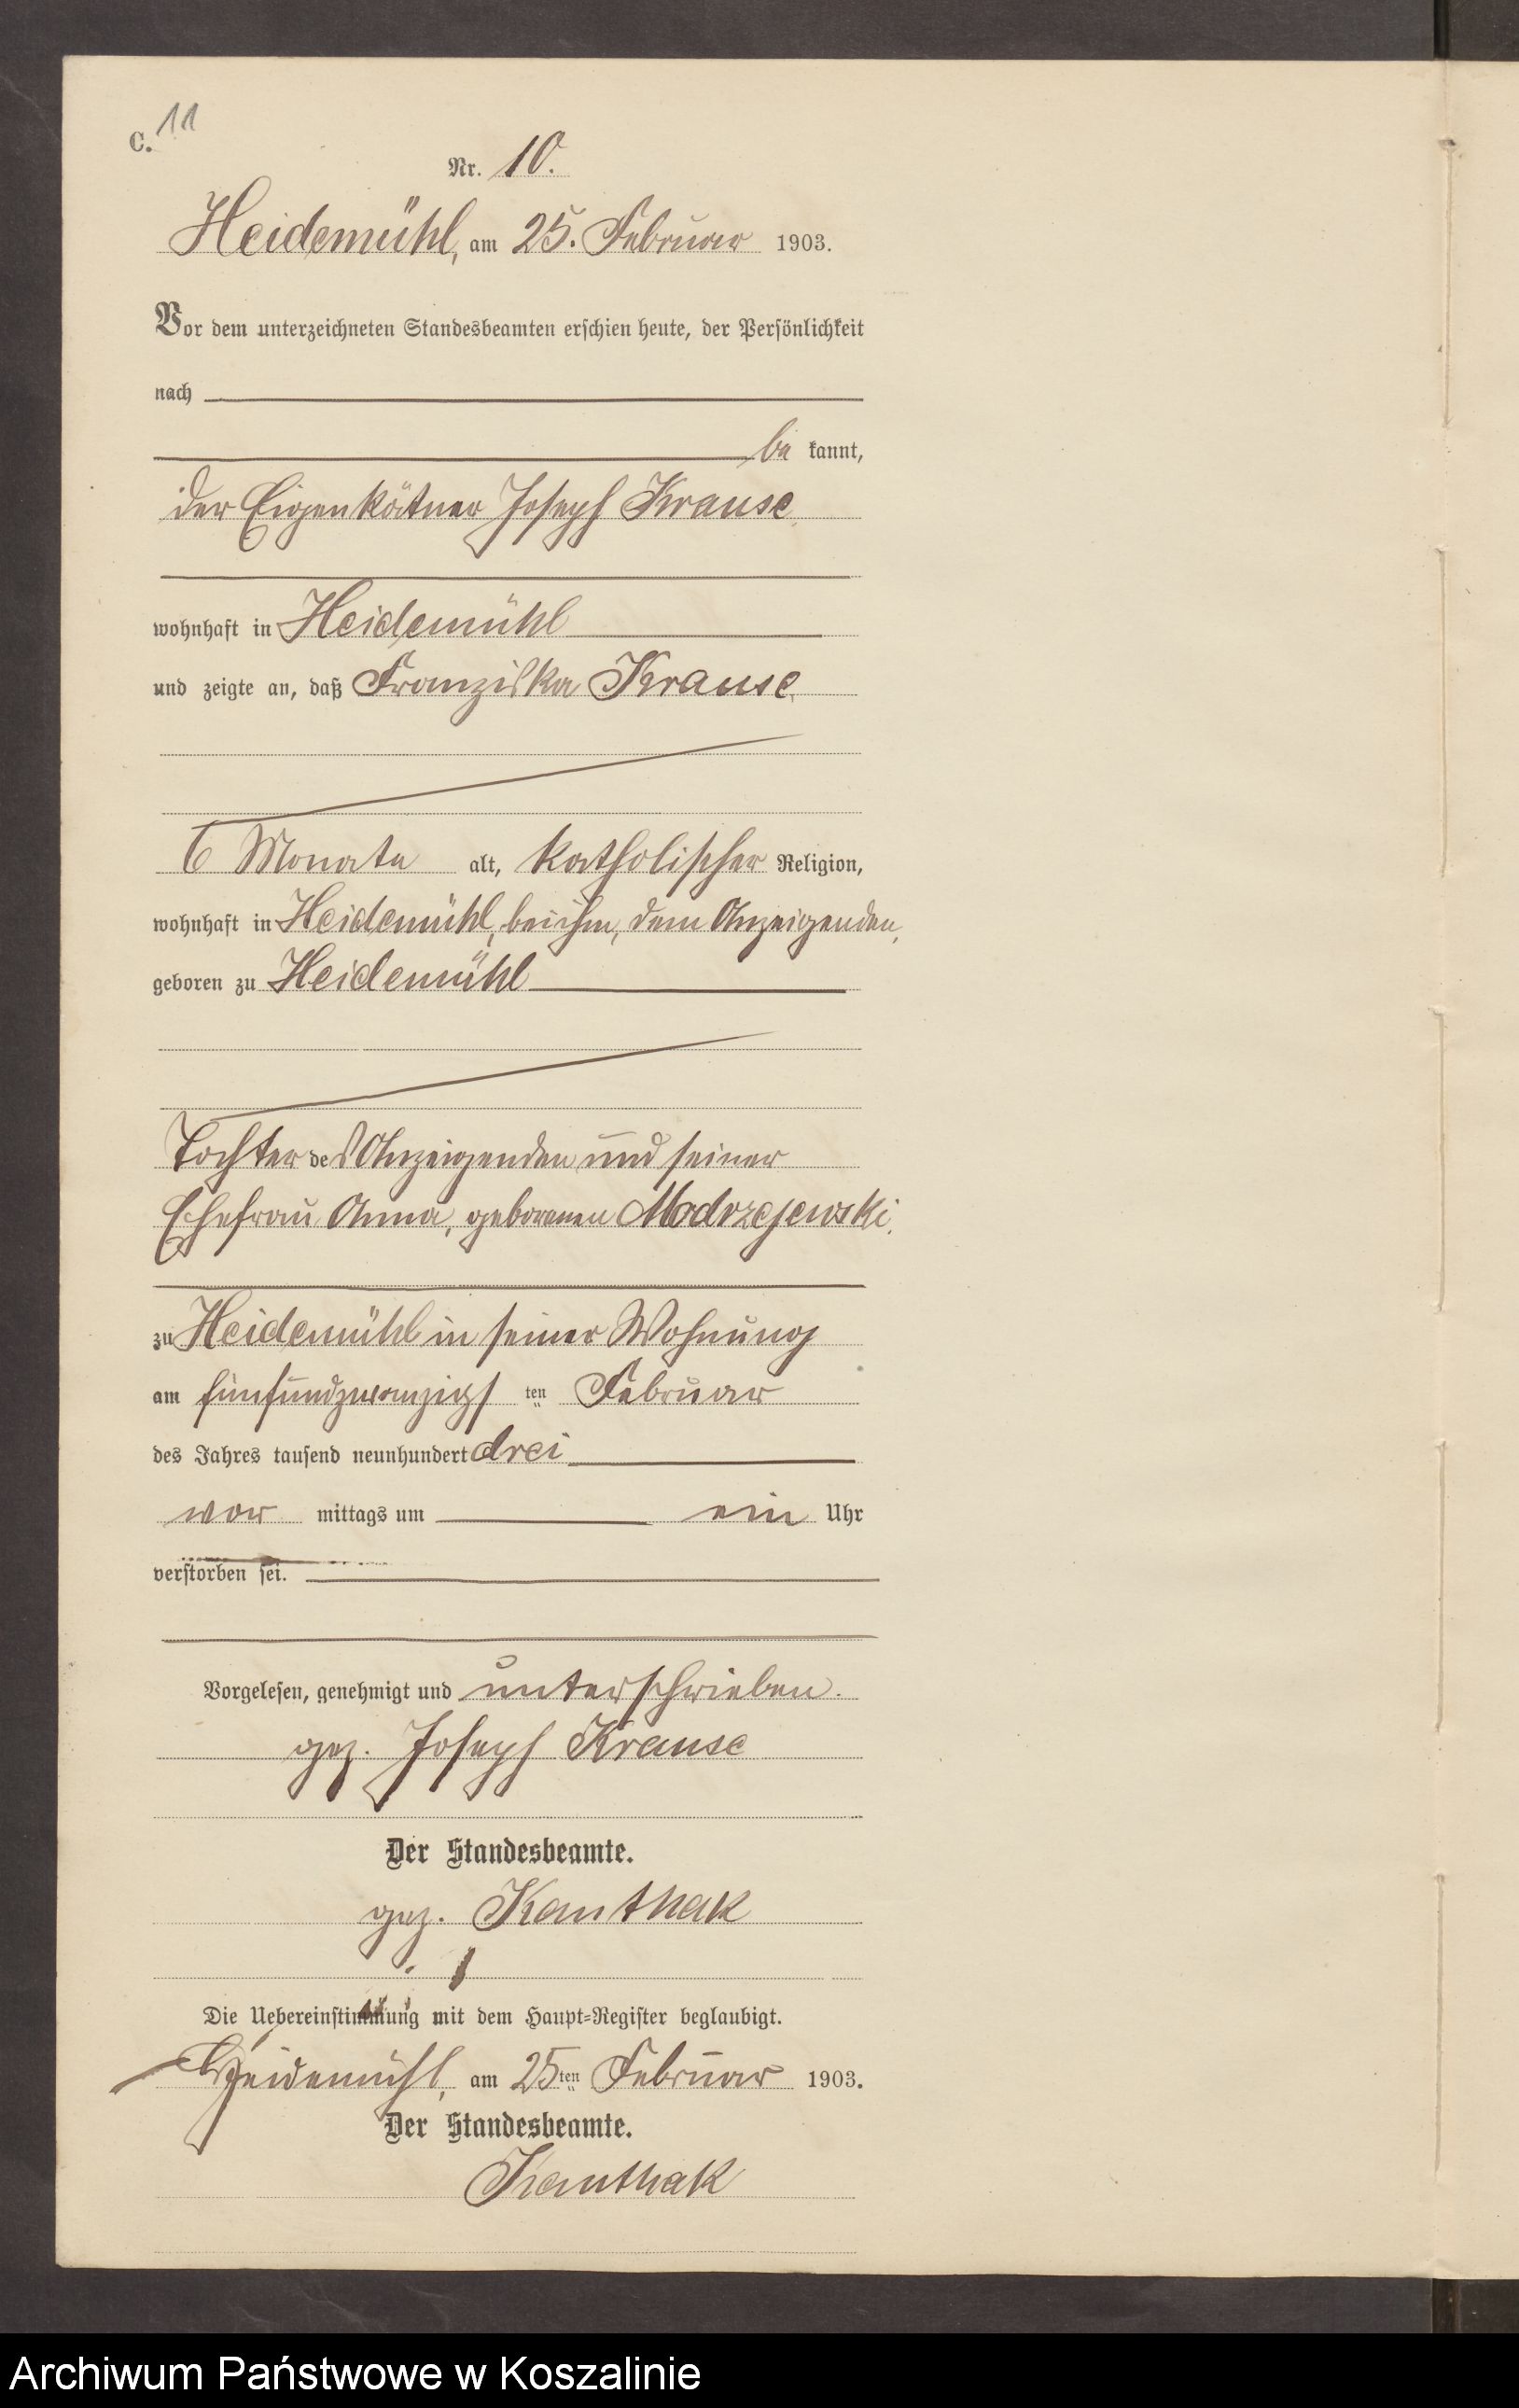 C. 11
Nr. 10.
Heidemühl, am 25. Februar 1903.
Vor dem unterzeichneten Standesbeamten erschien heute, der Persönlichkeit
nach
be kannt,
der Eigenkätner Joseph Krause
wohnhaft in Heidemühl
und zeigte an, daß Franziska Krause
6 Monate alt, katholischer Religion,
wohnhaft in Heidemühl, bei ihm, dem Anzeigenden,
geboren zu Heidemühl
Tochter des Anzeigenden und seiner
Ehefrau Anna, geborenen Modrzejewski,
zu Heidemühl in seiner Wohnung
am fünfundzwanzigs ten Februar
des Jahres tausend neunhundert drei
vor mittags um ein Uhr
verstorben sei.
Vorgelesen, genehmigt und unterschrieben.
gez. Joseph Krause
Der Standesbeamte.
gez. Kanthak
Die Uebereinstimmung mit dem Haupt-Register beglaubigt.
Heidemühl, am 25ten Februar 1903.
Der Standesbeamte.
Kanthak
Archiwum Państwowe w Koszalinie